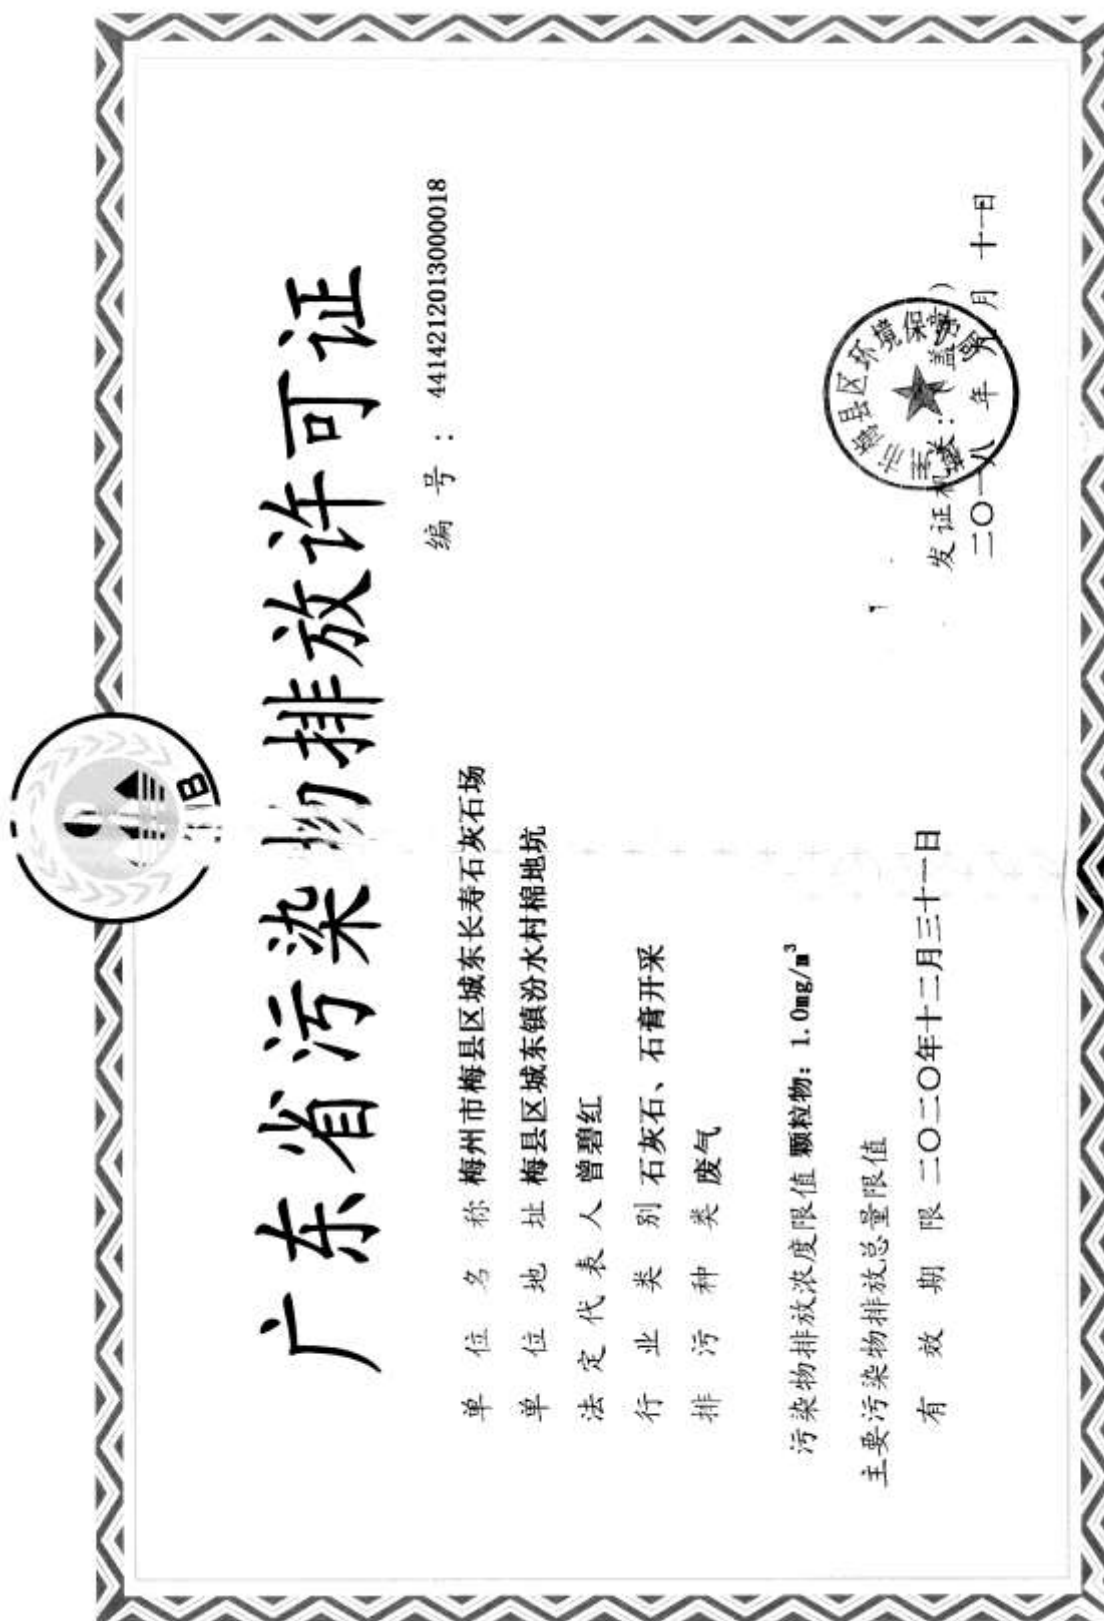 广东省污染物排放许可证
编 号 : 4414212013000018
单位名称 梅州市梅县区城东长寿石灰石场
单位地址 梅县区城东镇汾水村棉地坑
法定代表人 曾碧红
行业类别 石灰石、石膏开采
排污种类 废气
污染物排放浓度限值 颗粒物: 1.0mg/m³
主要污染物排放总量限值
有效期限 二〇二〇年十二月三十一日
市梅县区环境保
发证机关: (盖章)
二〇一八年 月十一日